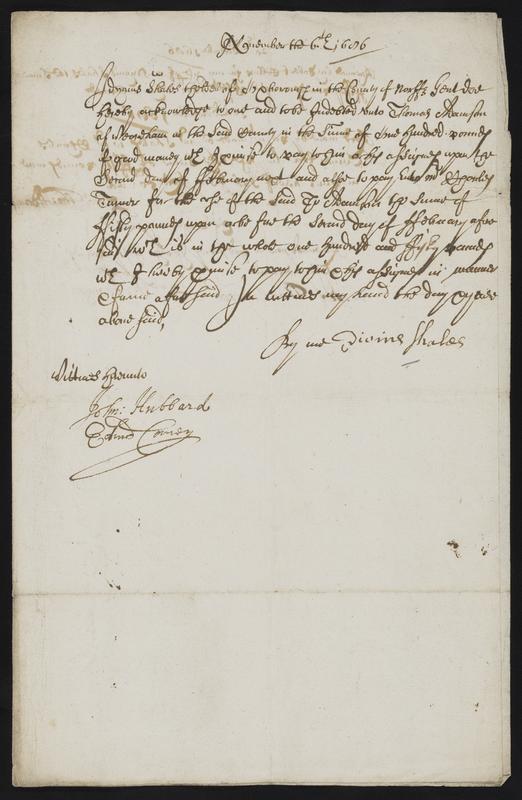 November the 6th 1606
in the County of Norff Gent doe
hereby acknowledge to owe and to be Indebted unto Thomas Adamson
of in the said County in the summe of One hundred pounds
of good money wch I promise to pay to him or his assignes upon the
second day of ffebruary next and alsoe to pay unto Mr
Turner for the use of the said Tho Adamson the summe of
ffifty pounds upon the second day of ffebruary
wch is in the whole one hundred and ffifty pounds
wch I hereby promise to pay to him or his assignes in manner
& forme aforesaid In wittnes my hand the day & yeare
above said,
By me Skales
Wittnes hereunto
John: Hubbard
Edmd